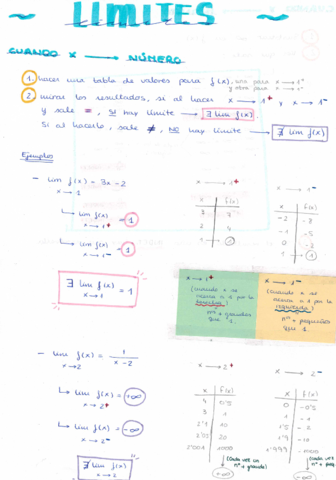 ~ LÍMITES ~
CUANDO X → NÚMERO
1. hacer una tabla de valores para f(x), una para x → 1⁻
y otra para x → 1⁺
2. mirar los resultados, si al hacer x → 1⁺ y x → 1⁻
y sale =, SI hay límite → ∃ lim f(x)
Si al hacerlo, sale ≠, NO hay límite → ∄ lim f(x)
Ejemplos
- lim f(x) = 3x - 2
x → 1
x → 1⁺
x → 1⁻
x | f(x)
3 | 7
2 | 4
1 → 1
x | f(x)
-2 | -8
-1 | -5
0 | -2
1 → 1
↳ lim f(x) = 1
x → 1⁺
↳ lim f(x) = 1
x → 1⁻
∃ lim f(x) = 1
x → 1
x → 1⁺
(cuando x se
acerca a 1 por la
derecha)
nos + grandes
que 1
x → 1⁻
(cuando x se
acerca a 1 por la
izquierda)
nos + pequeños
que 1
- lim f(x) = 1/(x - 2)
x → 2
x → 2⁺
x → 2⁻
↳ lim f(x) = +∞
x → 2⁺
↳ lim f(x) = -∞
x → 2⁻
x | f(x)
4 | 0'5
3 | 1
2'1 | 10
2'05 | 20
2'001 | 1000
(cada vez un
nº + grande)
+∞
x | f(x)
0 | -0'5
1 | -1
1'5 | -2
1'9 | -10
1'999 | -1000
(cada vez
nº + peq
-∞
∄ lim f(x)
x → 2